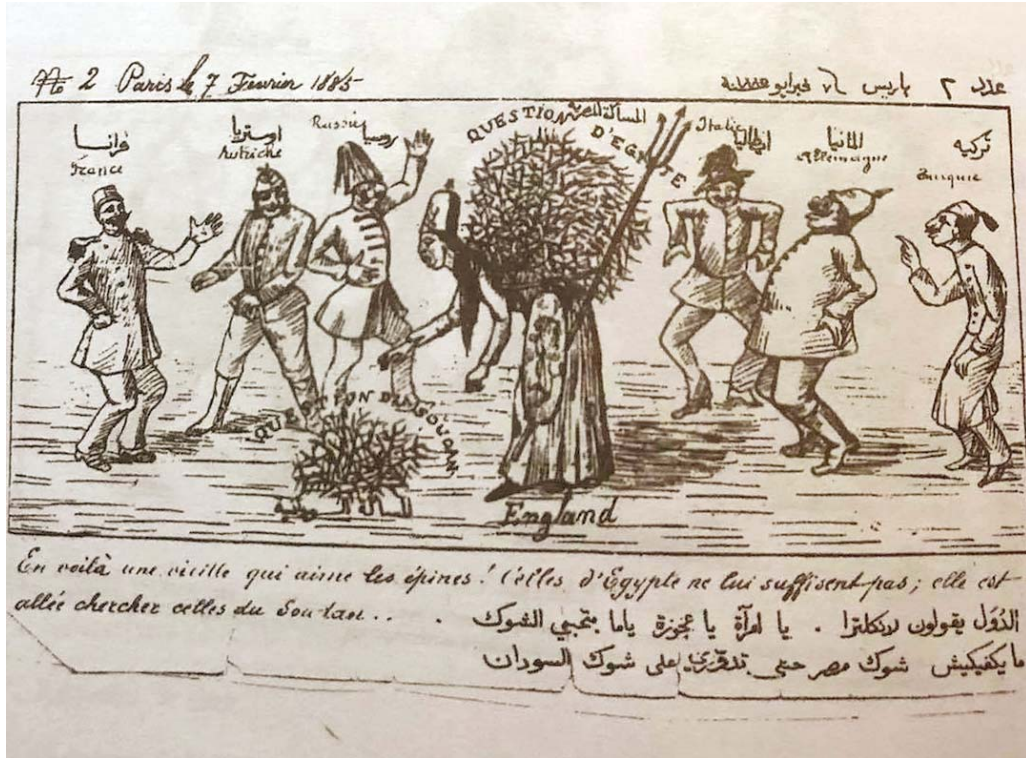 № 2 Paris le 7 Fevrier 1885
عدد ٢ باريس ٧ فبرايو سنة
فرانسا
France
اوستريا
Autriche
Russie
روسيا
QUESTION D'EGYPTE
المسالة المصرية
Italie
ايطاليا
المانيا
Allemagne
تركيه
Turquie
QUESTION DU SOUDAN
England
En voilà une vieille qui aime les épines! Celles d'Egypte ne lui suffisent pas; elle est
allée chercher celles du Soudan...
الدُوَل يقولون لانكلترا . يا امرأة يا عجوزة ياما بتحبي الشوك .
ما يكفيكيش شوك مصر حتى تدوّري على شوك السودان